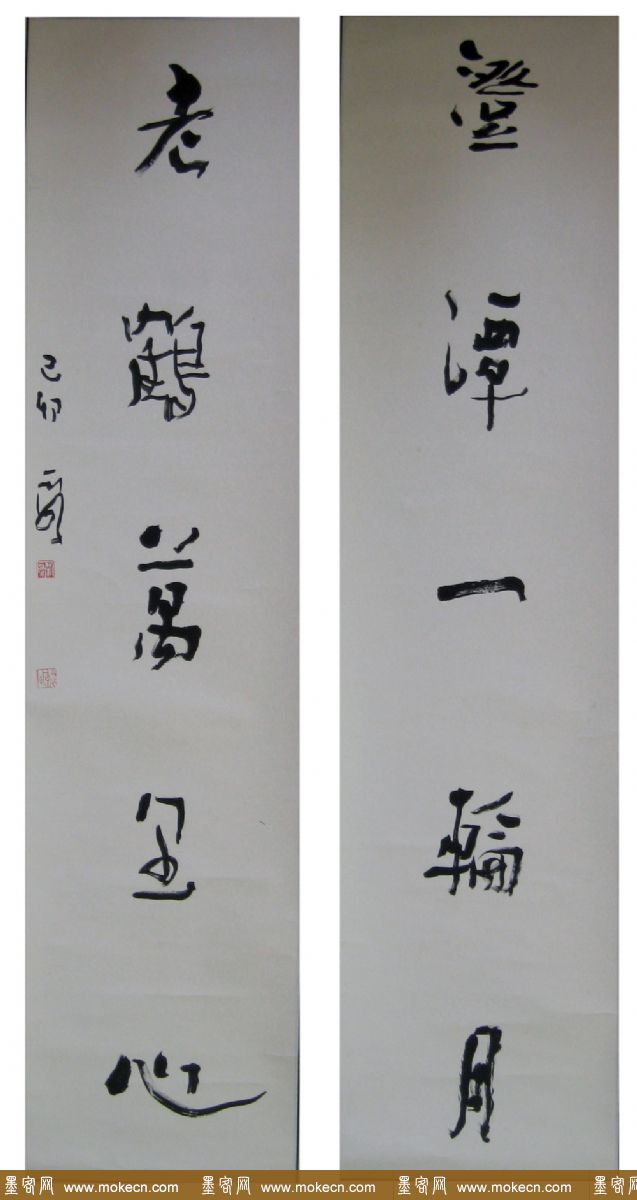 澄潭一輪月
老鶴萬里心
己卯
墨客网 www.mokecn.com 墨客网 www.mokecn.com 墨客网 www.mokecn.com 墨客网